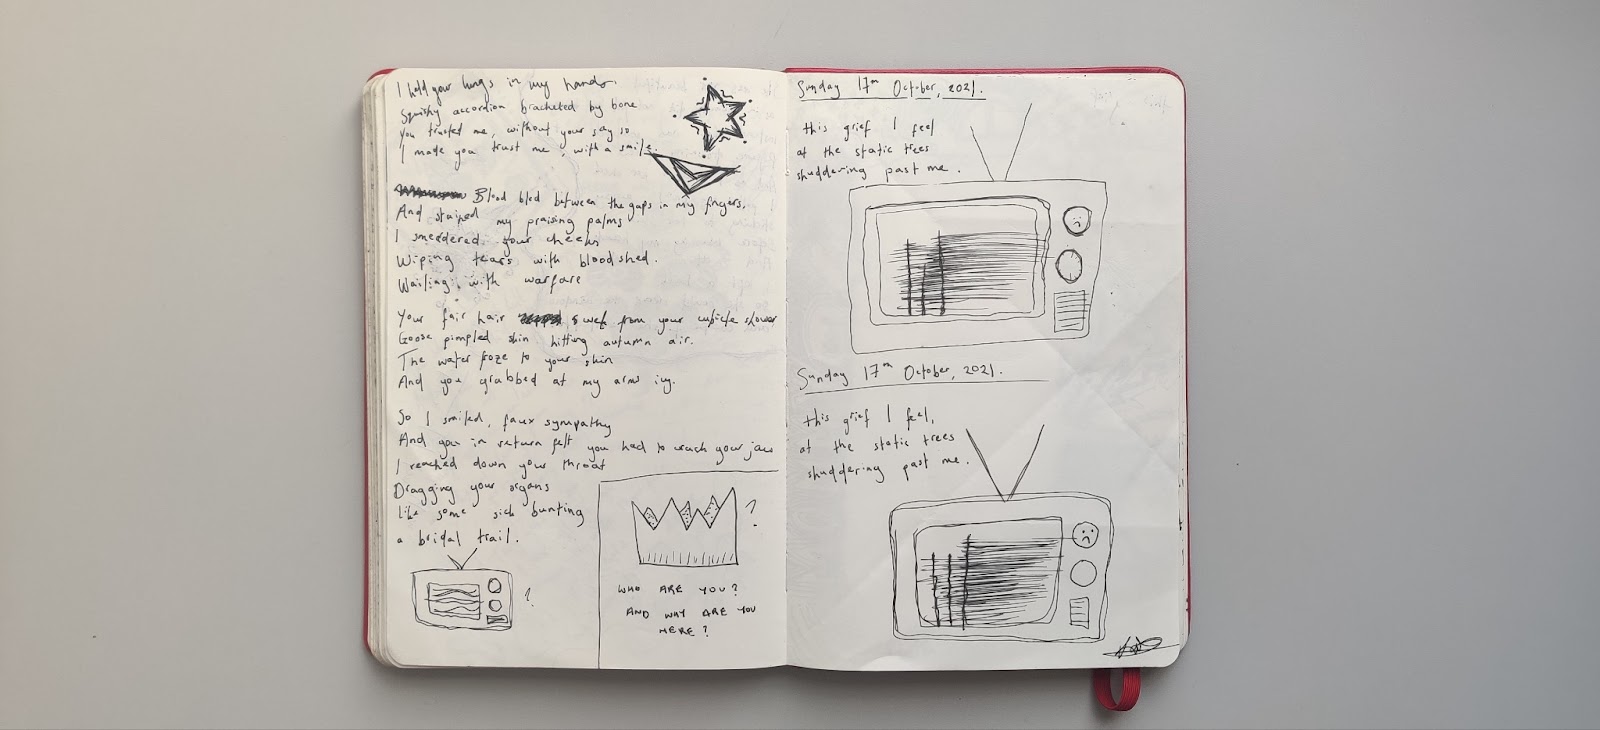 I hold your lungs in my hands.
Squishy accordion bracketed by bone
You trusted me, without your say so
I made you trust me, with a smile.
Blood bled between the gaps in my fingers.
And stained my praising palms
I smeedered your cheeks
Wiping tears with bloodshed.
Wailing with warfare
Your fair hair swet from your cubicle shower
Goose pimpled skin hitting autumn air.
The water froze to your skin
And you grabbed at my arms icy.
So I smiled, faux sympathy
And you in return felt you had to crack your jaw
I reached down your throat
Dragging your organs
like some sick bunting
a bridal trail.
?
?
WHO ARE YOU?
AND WHY ARE YOU
HERE?
Sunday 17th October, 2021.
this grief I feel
at the static trees
shuddering past me.
Sunday 17th October, 2021.
this grief I feel,
at the static trees
shuddering past me.